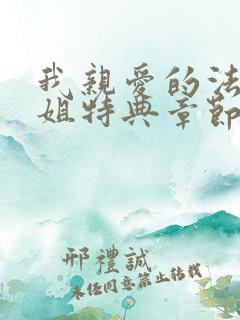 我親愛的法
姐特典章節
邢禮誠
未任同意禁止轉載